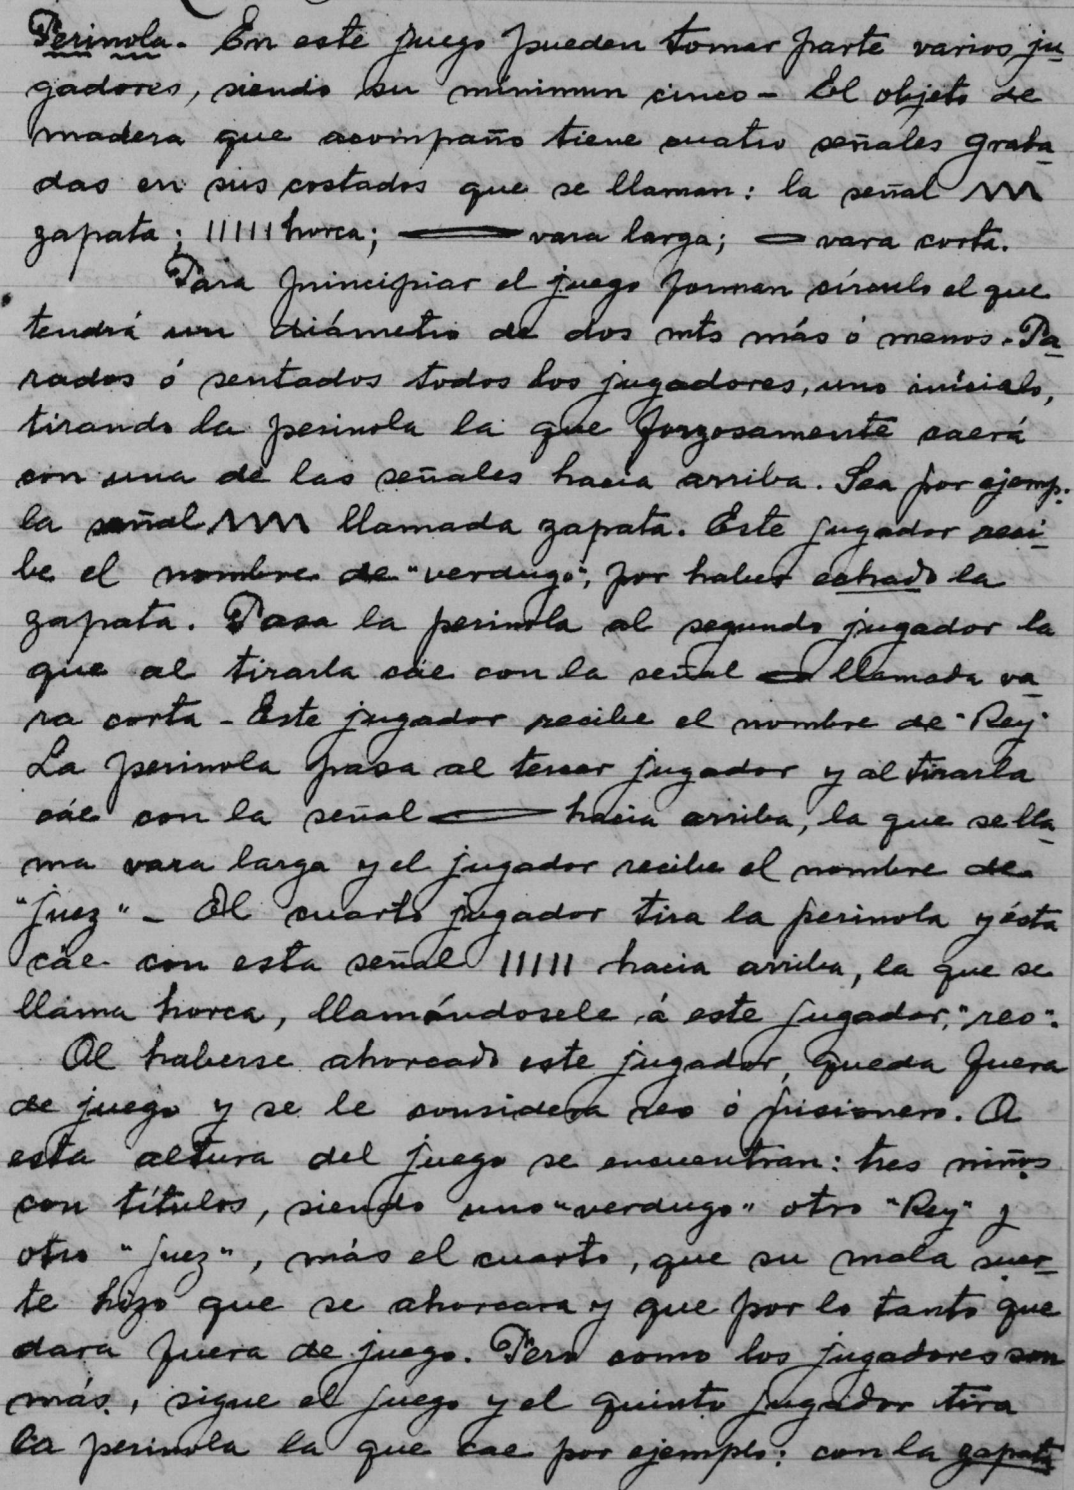 Perinola. En este juego pueden tomar parte varios ju-
gadores, siendo su minimun cinco - El objeto de
madera que acompaño tiene cuatro señales graba-
das en sus costados que se llaman: la señal
zapata; IIIII horca; vara larga; vara corta.
Para principiar el juego forman círculo el que
tendrá un diámetro de dos mts más ó menos. Pa-
rados ó sentados todos los jugadores, uno inícialo,
tirando la perinola la que forzosamente caerá
con una de las señales hacia arriba. Sea por ejemp.
la señal llamada zapata. Este jugador reci-
be el nombre de "verdugo", por haber echado la
zapata. Pasa la perinola al segundo jugador la
que al tirarla cáe con la señal llamada va-
ra corta - Este jugador recibe el nombre de "Rey"
La perinola pasa al tercer jugador y al tirarla
cáe con la señal hacia arriba, la que se lla-
ma vara larga y el jugador recibe el nombre de
"juez" - El cuarto jugador tira la perinola y ésta
cáe con esta señal IIIII hacia arriba, la que se
llama horca, llamándosele á este jugador, "reo".
Al haberse ahorcado este jugador, queda fuera
de juego y se le considera reo ó prisionero. A
esta altura del juego se encuentran: tres niños
con títulos, siendo uno "verdugo" otro "Rey" y
otro "juez", más el cuarto, que su mala suer-
te hizo que se ahorcara y que por lo tanto que
dara fuera de juego. Pero como los jugadores son
más, sigue el juego y el quinto jugador tira
la perinola la que cae por ejemplo: con la zapata